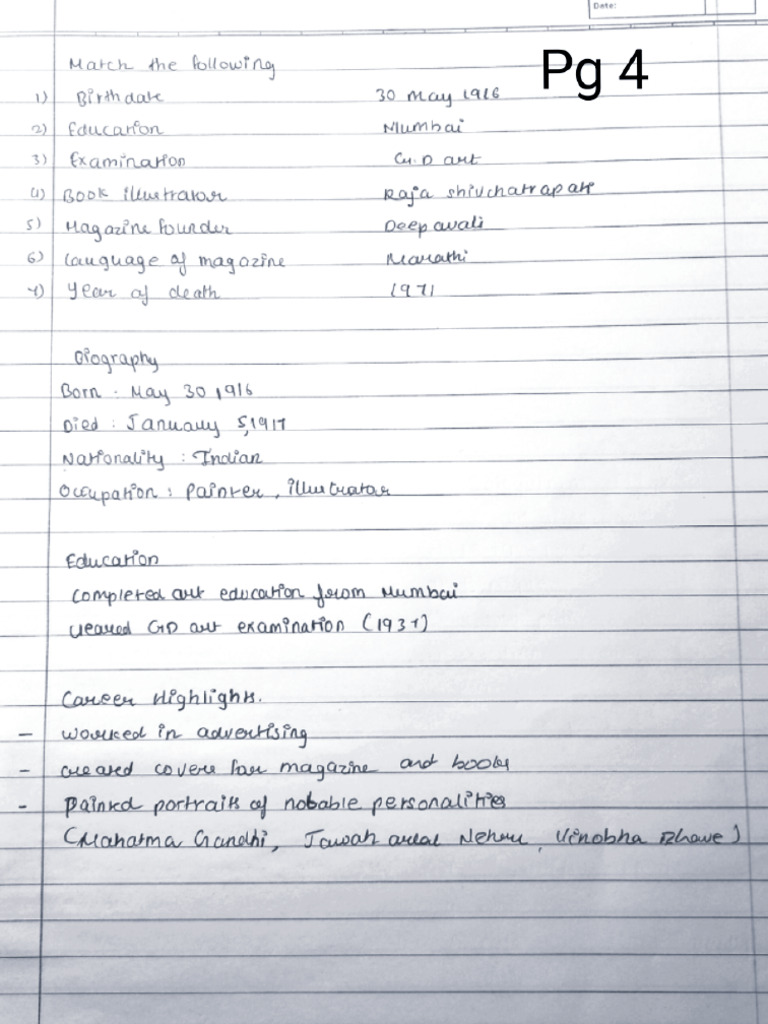 Date:
Pg 4
Match the following
1) Birthdate 30 May 1916
2) Education Mumbai
3) Examination G.D art
4) Book illustrator Raja shivchatrapati
5) Magazine founder Deepavali
6) Language of magazine Marathi
7) Year of death 1971
Biography
Born : May 30 1916
Died : January 5, 1917
Nationality : Indian
Occupation : Painter, illustrator
Education
Completed art education from Mumbai
cleared GD art examination (1937)
Career Highlights.
- worked in advertising
- created covers for magazine and books
- Painted portraits of notable personalities
(Mahatma Gandhi, Jawaharlal Nehru, Vinobha Bhave)